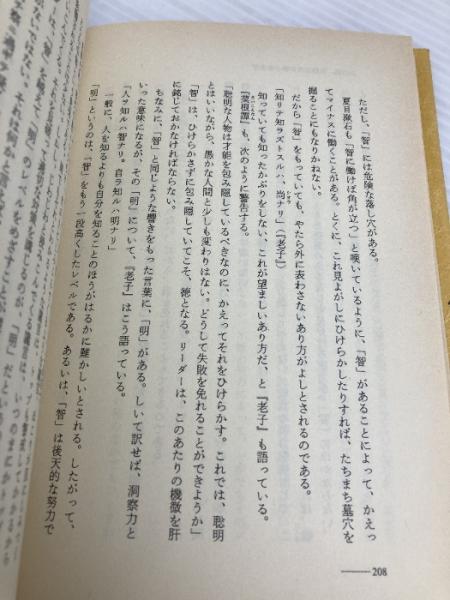 ただし、「智」には危険な落し穴がある。
夏目漱石も「智に働けば角が立つ」と嘆いているように、「智」があることによって、かえっ
てマイナスに働くことがある。とくに、これ見よがしにひけらかしたりすれば、たちまち墓穴を
掘ることにもなりかねない。
だから「智」をもっていても、やたら外に表わさないあり方がよしとされるのである。
「知リテ知ラズトスルハ、尚ナリ」（『老子』）
知っていても知ったかぶりをしない、これが望ましいあり方だ、と『老子』も語っている。
『菜根譚』も、次のように警告する。
「聡明な人物は才能を包み隠しているべきなのに、かえってそれをひけらかす。これでは、聡明
とはいいながら、愚かな人間と少しも変わりはない。どうして失敗を免れることができようか」
「智」は、ひけらかさずに包み隠していてこそ、徳となる。リーダーは、このあたりの機微を肝
に銘じておかなければならない。
ちなみに、「智」と同じような響きをもった言葉に、「明」がある。しいて訳せば、洞察力と
いった意味になるが、その「明」について、『老子』はこう語っている。
「人ヲ知ルハ智ナリ。自ラ知ルハ明ナリ」
一般に、人を知るよりも自分を知ることのほうがはるかに難かしいとされる。したがって、
「明」というのは、「智」をもう一段高くしたレベルである。あるいは、「智」は後天的な努力で
208